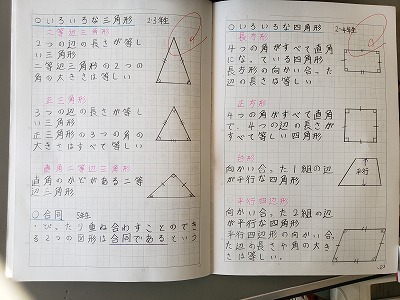 ○いろいろな三角形 2・3年生
二等辺三角形
2つの辺の長さが等し
い三角形
二等辺三角形の2つの
角の大きさは等しい
正三角形
3つの辺の長さが等し
い三角形
正三角形の3つの角の
大きさはすべて等しい
直角二等辺三角形
直角のかどがある二等
辺三角形
○合同 5年生
・ぴったり重ね合わすことのでき
る2つの図形は合同であるという
○いろいろな四角形 2~4年生
長方形
4つの角がすべて直角
になっている四角形
長方形の向かい合った
辺の長さは等しい
正方形
4つの角がすべて直角
で、4つの辺の長さが
すべて等しい四角形
台形
向かい合った1組の辺
が平行な四角形
平行
平行四辺形
向かい合った2組の辺
が平行な四角形
平行四辺形の向かい合っ
た辺の長さや角の大き
さは等しい。